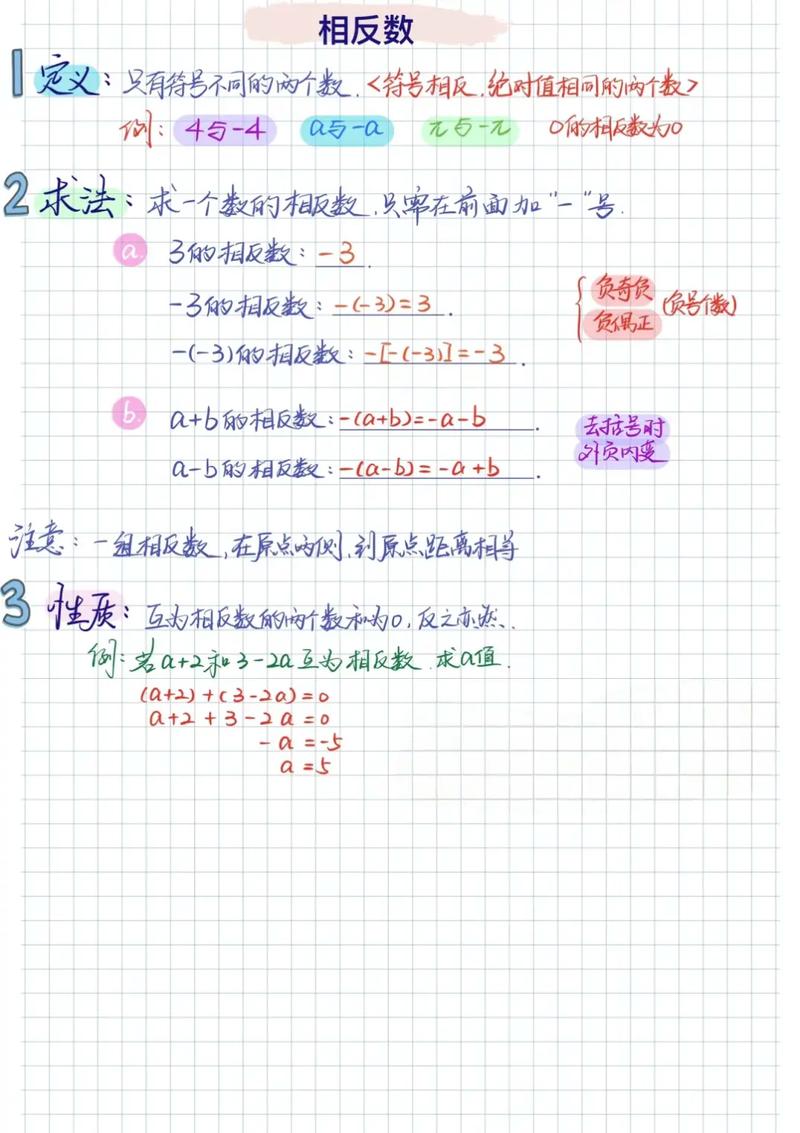 相反数
1 定义：只有符号不同的两个数.<符号相反.绝对值相同的两个数>
例：4与-4 a与-a π与-π 0的相反数为0
2 求法：求一个数的相反数,只需在前面加"-"号.
a. 3的相反数：-3.
-3的相反数：-(-3)=3.
负奇负
负偶正
(负号个数)
-(-3)的相反数：-[-(-3)]=-3.
b. a+b的相反数：-(a+b)=-a-b.
a-b的相反数：-(a-b)=-a+b.
去括号时
外负内变
注意：一组相反数,在原点两侧,到原点距离相等
3 性质：互为相反数的两个数和为0,反之亦然.
例：若a+2和3-2a互为相反数.求a值.
(a+2)+(3-2a)=0
a+2+3-2a=0
-a=-5
a=5